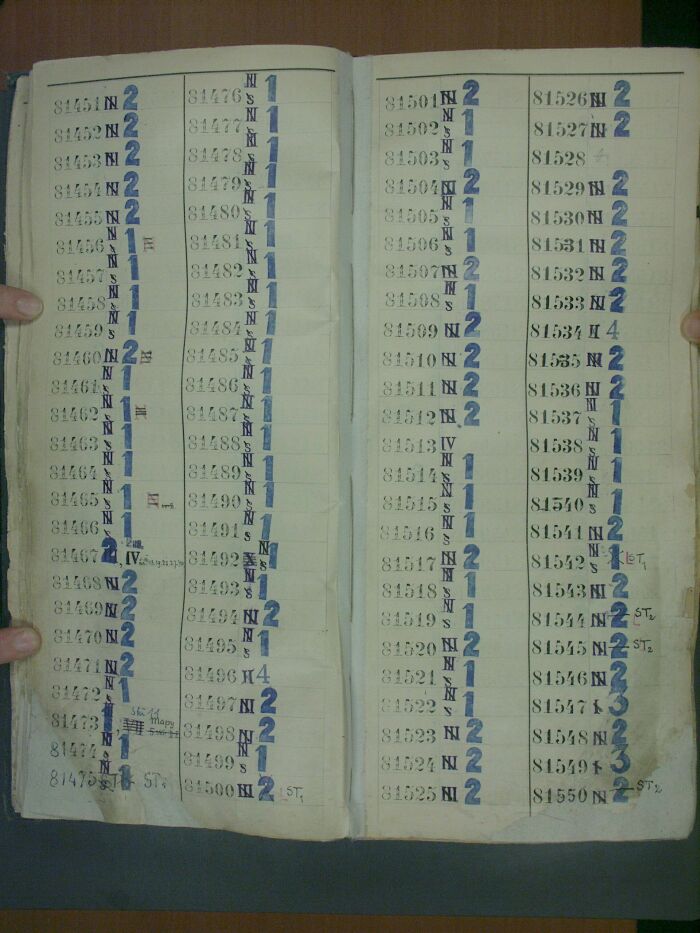 81451 N 2
81452 N 2
81453 N 2
81454 N 2
81455 N 2
81456 N s 1 III
81457 N s 1
81458 N s 1
81459 N s 1
81460 N 2 VII
81461 N s 1
81462 N s 1 III
81463 N s 1
81464 N s 1
81465 N s 1
81466 N s 1
81467 2, IV
81468 N 2
81469 N 2
81470 N 2
81471 N 2
81472 N s 1
81473 1, VII Mapy
81474 N s 1
81475 ST 1 ST1
81476 N s 1
81477 N s 1
81478 N s 1
81479 N s 1
81480 N s 1
81481 N s 1
81482 N s 1
81483 N s 1
81484 N s 1
81485 N s 1
81486 N s 1
81487 N s 1
81488 N s 1
81489 N s 1
81490 N s 1
81491 N s 1
81492 N s 1
81493 N s 1
81494 N 2
81495 N s 1
81496 N 4
81497 N 2
81498 N 2
81499 N s 1
81500 N 2 ST1
81501 N 2
81502 N s 1
81503 N s 1
81504 N 2
81505 N s 1
81506 N s 1
81507 N 2
81508 N s 1
81509 N 2
81510 N 2
81511 N 2
81512 N 2
81513 IV
81514 N s 1
81515 N s 1
81516 N s 1
81517 N 2
81518 N s 1
81519 N s 1
81520 N 2
81521 N s 1
81522 N s 1
81523 N 2
81524 N 2
81525 N 2
81526 N 2
81527 N 2
81528
81529 N 2
81530 N 2
81531 N 2
81532 N 2
81533 N 2
81534 N 4
81535 N 2
81536 N 2
81537 N s 1
81538 N s 1
81539 N s 1
81540 N s 1
81541 N 2
81542 s 1 ST1
81543 N 2
81544 N 2 ST2
81545 N 2 ST2
81546 N 2
81547 3
81548 N 2
81549 3
81550 N 2 ST2